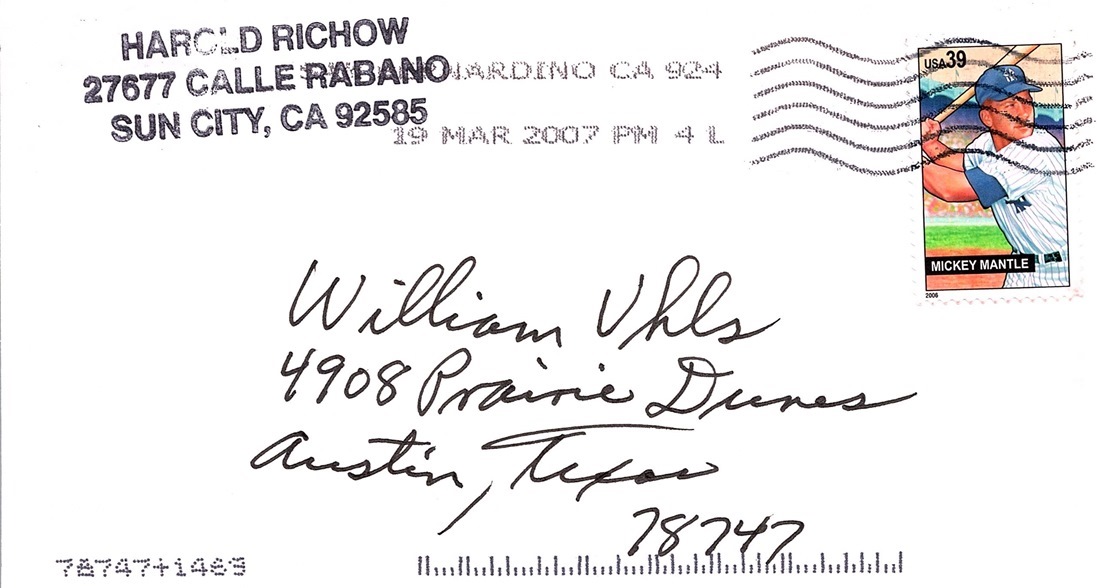 HAROLD RICHOW
27677 CALLE RABANO
SUN CITY, CA 92585
NARDINO CA 924
19 MAR 2007 PM 4 L
USA 39
MICKEY MANTLE
2006
William Uhls
4908 Prairie Dunes
Austin, Texas
78747
78747+1469